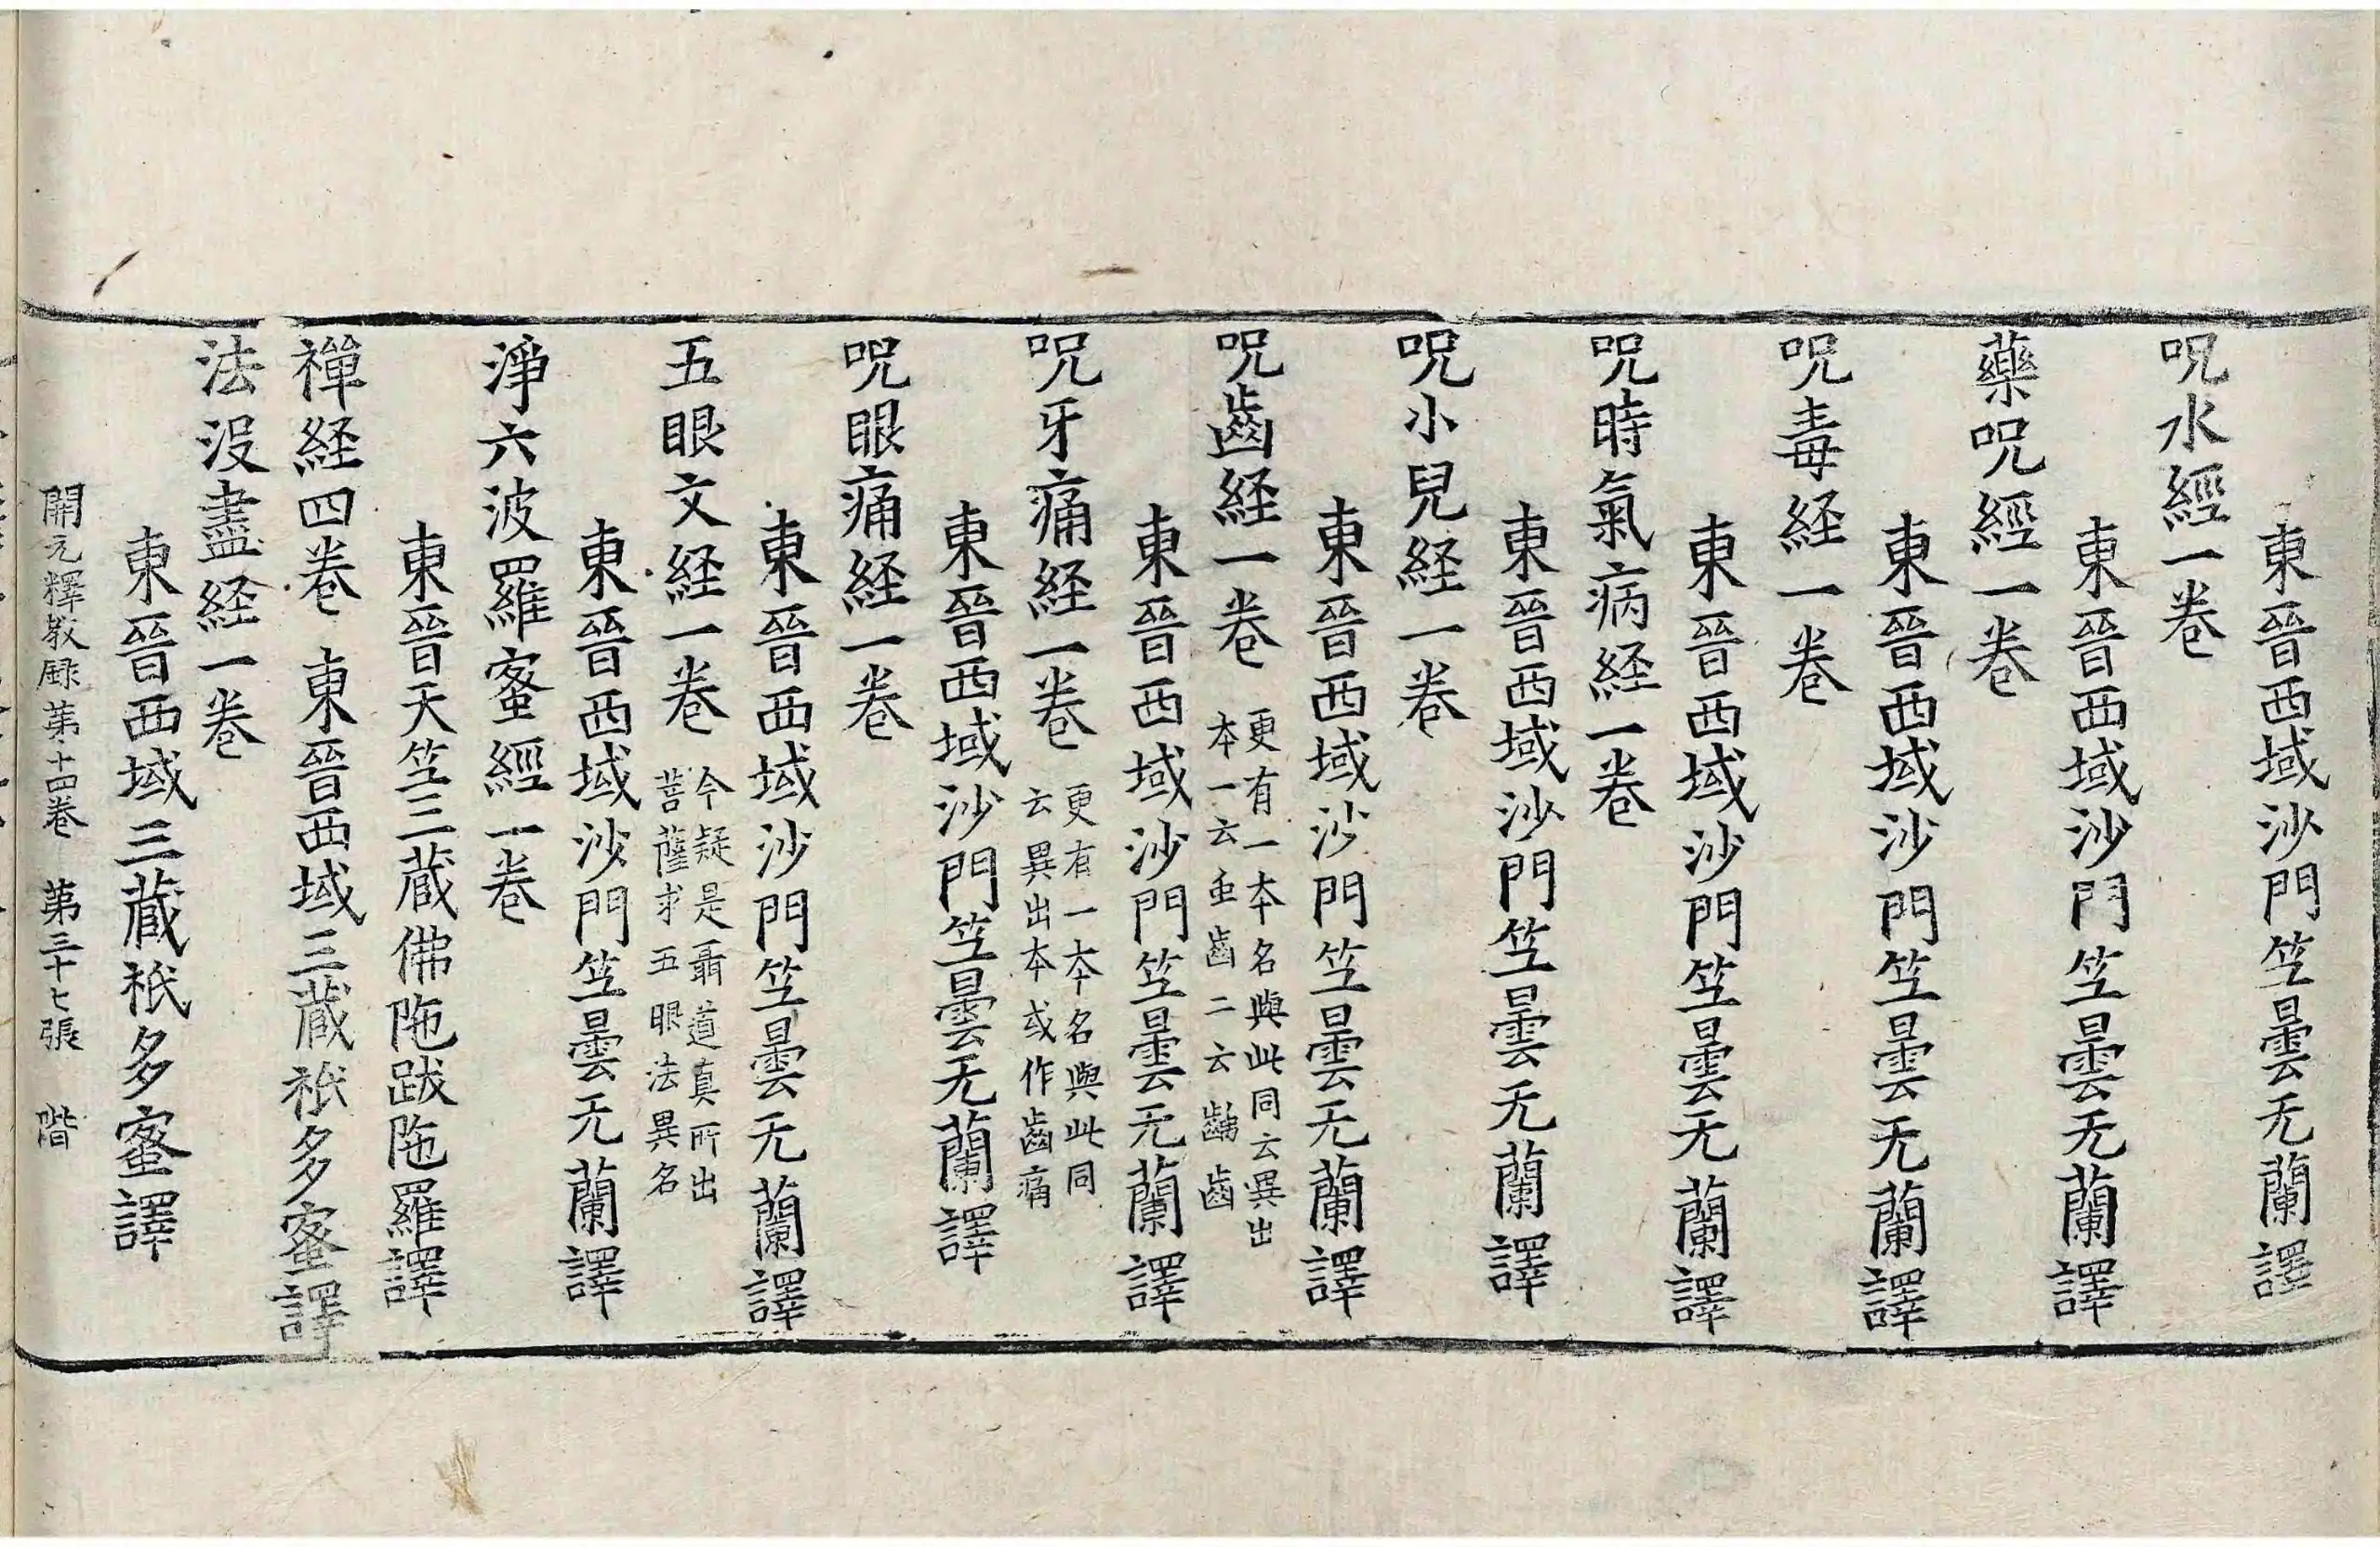 東晉西域沙門竺曇无蘭譯
呪水經一卷
東晉西域沙門竺曇无蘭譯
藥呪經一卷
東晉西域沙門竺曇无蘭譯
呪毒経一卷
東晉西域沙門竺曇无蘭譯
呪時氣病経一卷
東晉西域沙門竺曇无蘭譯
呪小兒経一卷
東晉西域沙門竺曇无蘭譯
呪齒経一卷 更有一本名與此同云異出
本一云虫齒二云齲齒
東晉西域沙門竺曇无蘭譯
呪牙痛経一卷 更有一本名與此同
云異出本或作齒痛
東晉西域沙門竺曇无蘭譯
呪眼痛経一卷
東晉西域沙門竺曇无蘭譯
五眼文経一卷 今疑是聶道真所出
菩薩求五眼法異名
東晉西域沙門竺曇无蘭譯
淨六波羅蜜經一卷
東晉天竺三藏佛陁跋陁羅譯
禪経四卷 東晉西域三藏祇多蜜譯
法没盡経一卷
東晉西域三藏祇多蜜譯
開元釋教録第十四卷 第三十七張 階